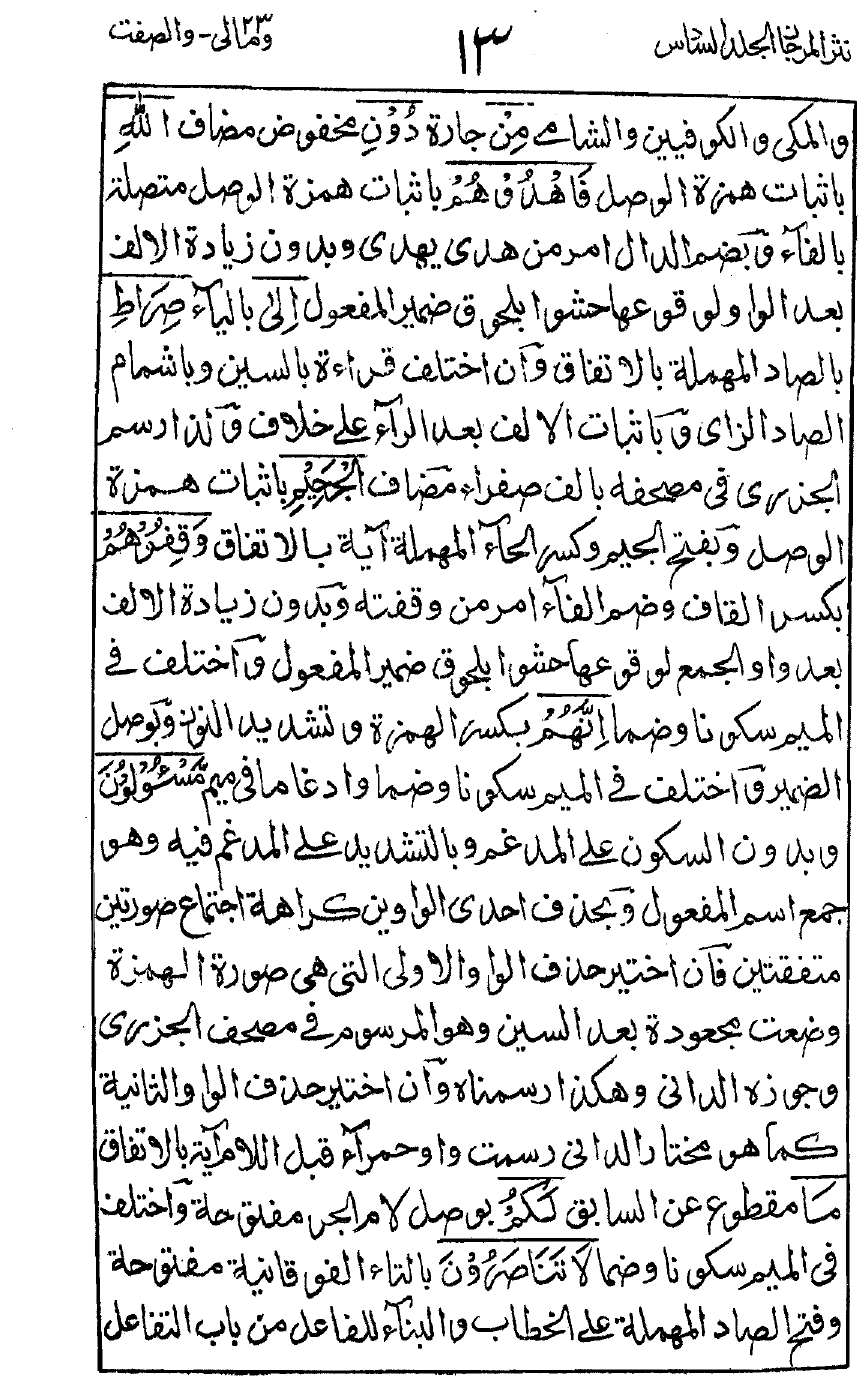 نثر المرجان الجلد السادس
١٣
ومالى ٢٣ - والصفت
والمكى والكوفيين والشامى مِنْ جارة دُوْنِ مخفوض مضاف اللّٰهِ
باثبات همزة الوصل فَاهْدُوْهُمْ باثبات همزة الوصل متصلة
بالفآء وبضم الدال امر من هدى يهدى وبدون زيادة الالف
بعد الواو لوقوعها حشوا بلحوق ضمير المفعول اِلىٰ باليآء صِرَاطِ
بالصاد المهملة بالاتفاق وان اختلف قراءة بالسين وباشمام
الصاد الزاى وباثبات الالف بعد الرآء على خلاف ولذا رسم
الجزرى فى مصحفه بالف صفراء مضاف الْجَحِيْمِ باثبات همزة
الوصل وبفتح الجيم وكسر الحآء المهملة آية بالاتفاق وَقِفُوْهُمْ
بكسر القاف وضم الفآء امر من وقفته وبدون زيادة الالف
بعد واو الجمع لوقوعها حشوا بلحوق ضمير المفعول واختلف فى
الميم سكونا وضما اِنَّهُمْ بكسر الهمزة وتشديد النون وبوصل
الضمير واختلف فى الميم سكونا وضما وادغاما فى ميم مَّسْئُوْلُوْنَ
وبدون السكون على المدغم وبالتشديد على المدغم فيه وهو
جمع اسم المفعول وبحذف احدى الواوين كراهة اجتماع صورتين
متفقتين فان اختير حذف الواو الاولى التى هى صورة الهمزة
وضعت مجعودة بعد السين وهو المرسوم فى مصحف الجزرى
وجوزه الدانى وهكذا رسمناه وان اختير حذف الواو الثانية
كما هو مختار الدانى رسمت واو حمرآء قبل اللام آية بالاتفاق
مَا مقطوع عن السابق لَكُمْ بوصل لام الجر مفتوحة واختلف
فى الميم سكونا وضما لَا تَنَاصَرُوْنَ بالتاء الفوقانية مفتوحة
وفتح الصاد المهملة على الخطاب والبنآء للفاعل من باب التفاعل